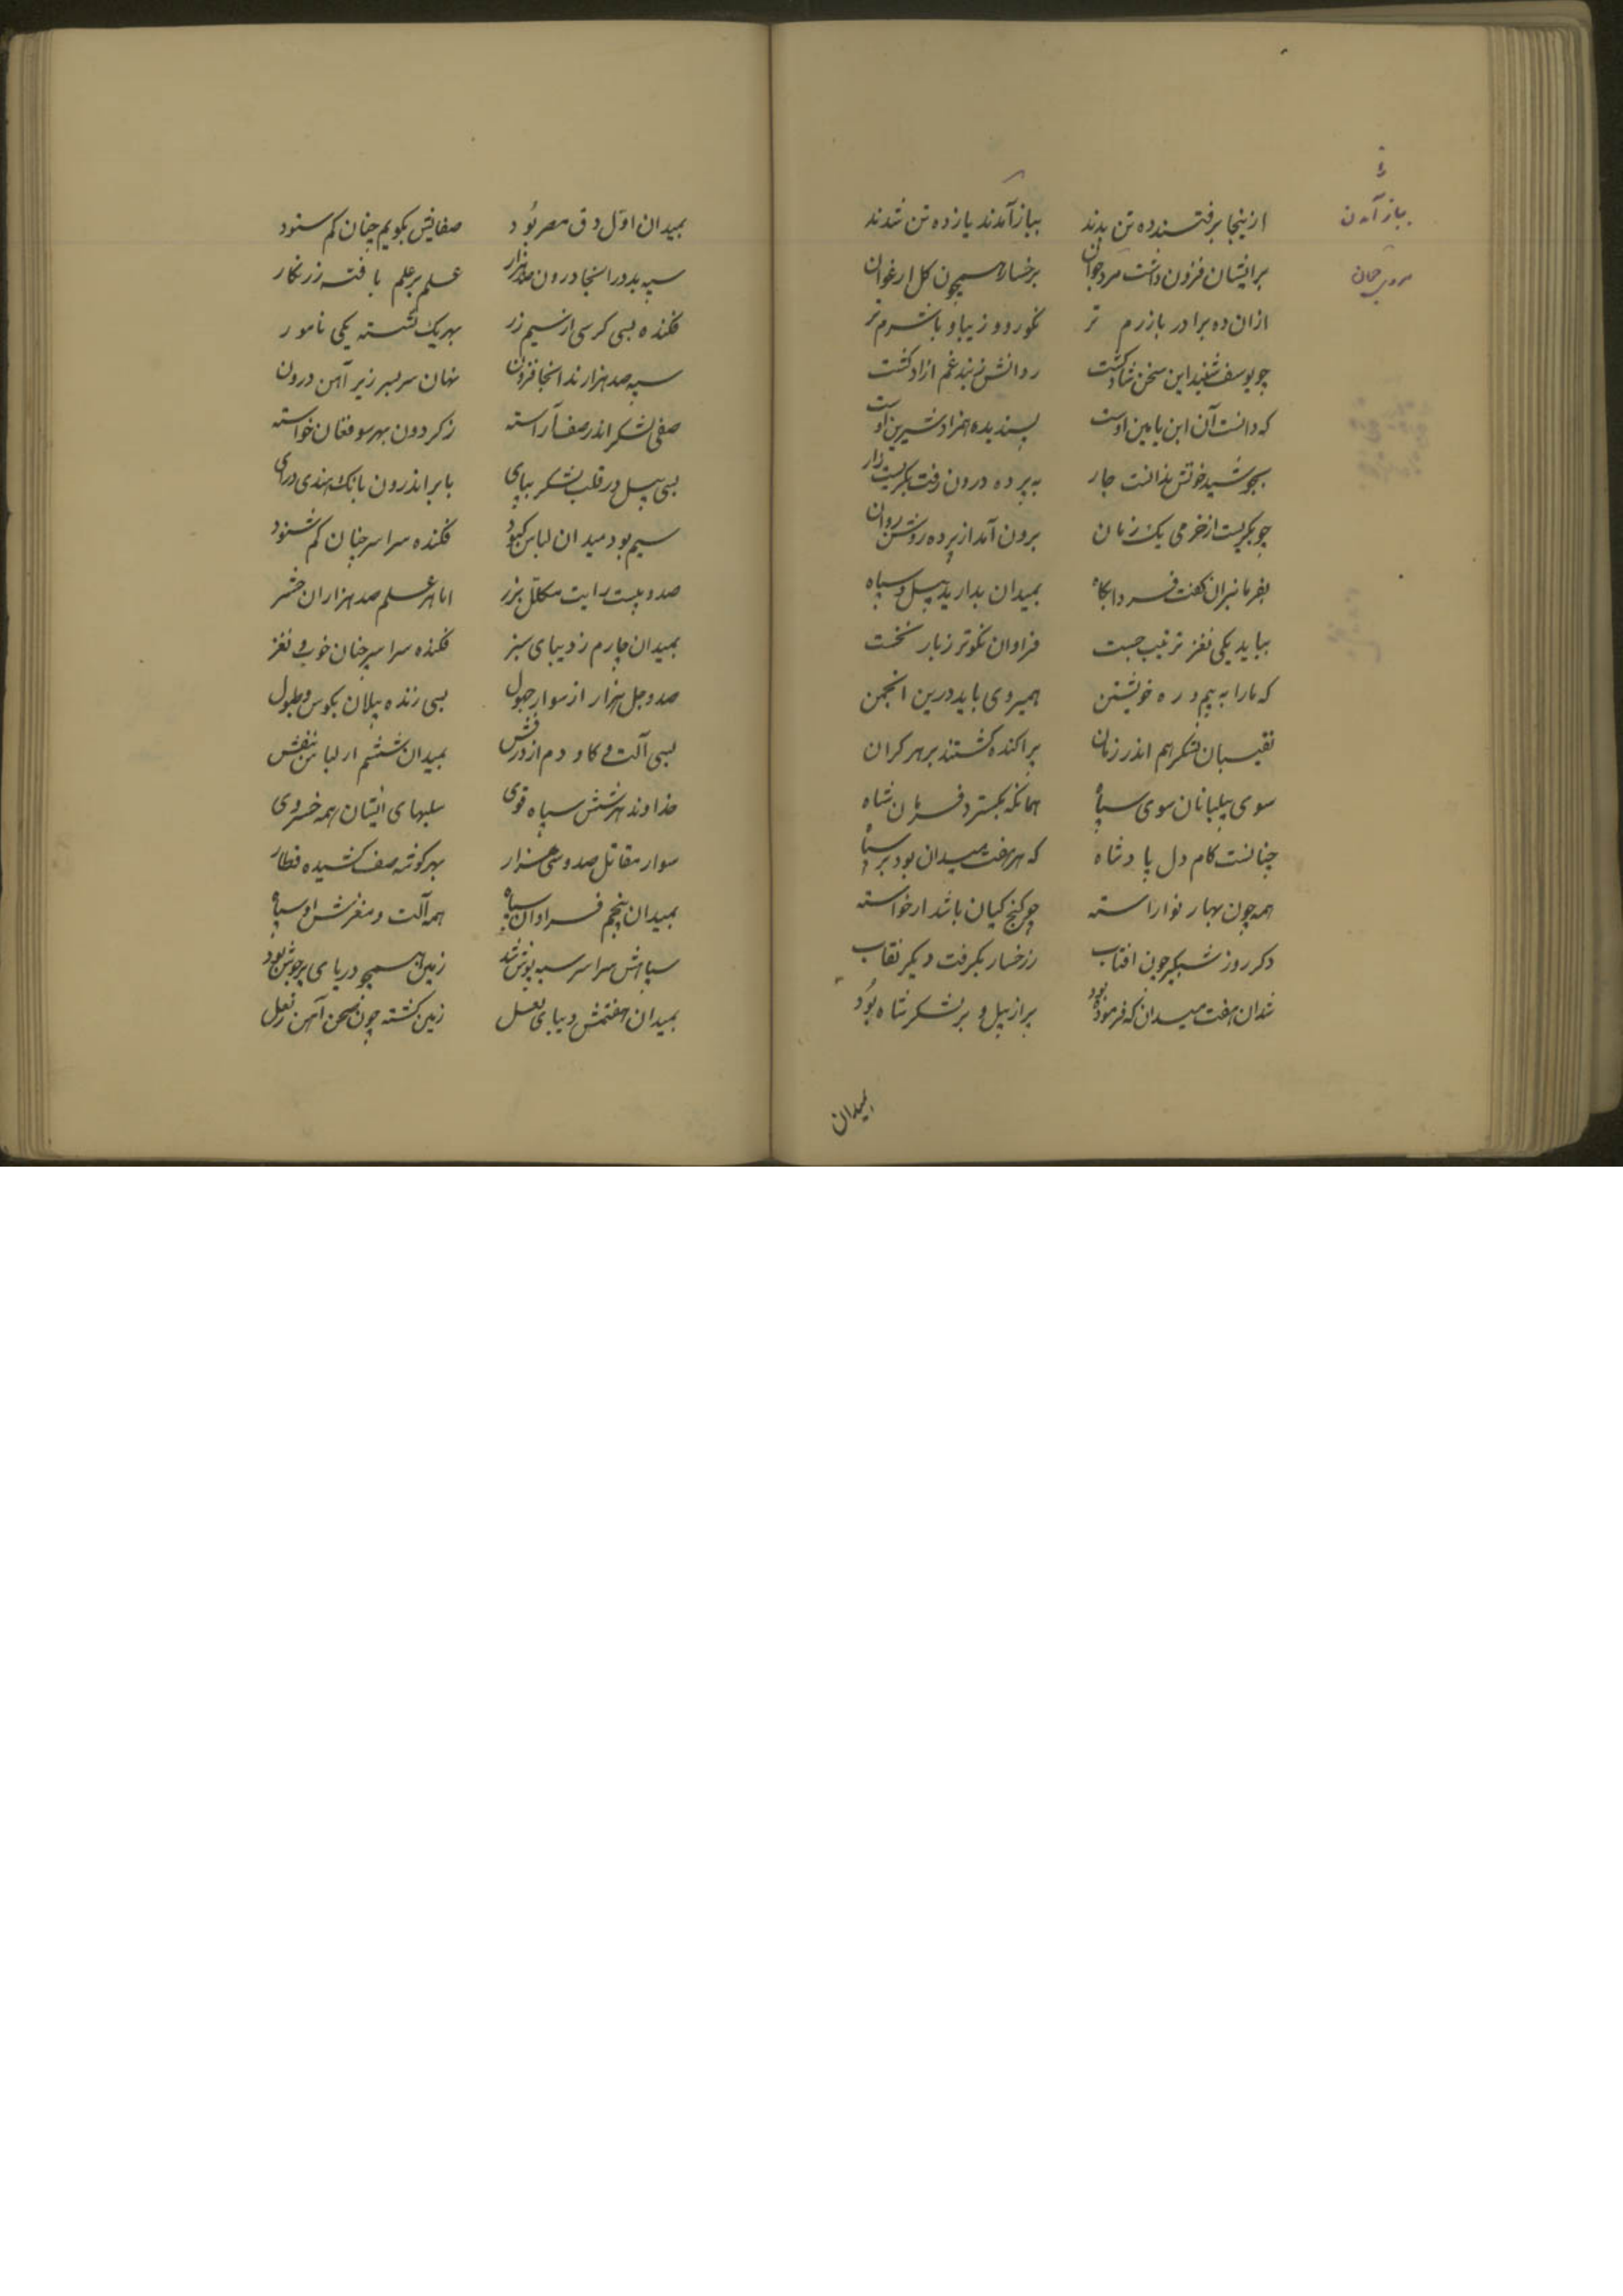 ازینجا برفتسند ده تن بدند بباز آمدند یازده تن شدند
برایشان فزون داشت مرد جوان برخساره همیچون کل ارغوان
ازان ده برادر بازرم تر نکورو و زیبا و باشرم تر
چو یوسف شنید این سخن شاد کشت روانش ز بند غم ازاد کشت
که دانست آن ابن یامین اوست پسندیده همزاد شیرین اوست
بجوشید خونش ندانست چار به پرده درون رفت بکریست زار
چو بکریست از خرمی یک زمان برون آمد از پرده روشن روان
بفرمانبران کفت فردا بکاه بمیدان بدارید پیل و سپاه
بباید یکی نغز ترتیب جست فراوان نکوتر ز بار نخست
که مارا به پیم و ره خویشتن همیروی باید درین انجمن
نقیبان لشکر هم اندر زمان پراکنده کشتند بر هر کران
سوی پیلبانان سوی سپاه همانکه بکسترد فرمان شاه
چنانست کام دل پادشاه که هر هفت میدان بود پر سپاه
همه چون بهار نو اراسته چو کنج کیان باشد ار خواسته
دکر روز شبکیر چون افتاب ز رخسار بکرفت دیکر نقاب
شد ان هفت میدان که فرموده بود پر از پیل و پر لشکر شاه بود
بباز آمدن
بمیدان
بمیدان اول دق مصر بود صفایش بکویم چنان کم سنود
سپه بد در انجا درون صد هزار علم بر علم بافته زرنکار
فکنده بسی کرسی از سیم زر بهر یک نشسته یکی نامور
سپه صد هزارند انجا فزون نهان سر بسر زیر آهن درون
صفی لشکر اندر صف آراسته ز کردون بهر سو فغان خواسته
بسی پیل در قلب لشکر بپای بابر اندرون بانک هندی درای
سیم بود میدان لباس کبود فکنده سراسر چنان کم شنود
صد و بیست رایت مکلل بزر ابا هر علم صد هزاران حشر
بمیدان چارم ز دیبای سبز فکنده سراسر چنان خوب و نغز
صد و چل هزار از سوار جهول بسی زنده پیلان بکوس و طبول
بسی آلت و کاو دم از درفش بمیدان ششم از لباس بنفش
خداوند هر شش سپاه قوی سلبهای ایشان همه خسروی
سوار مقاتل صد و سی هزار بهر کوشه صف کشیده قطار
بمیدان پنجم فراوان سپاه همه آلت و مفرش او سیاه
سپاهش سراسر سیه پوش شد زمین همیچو دریای پرجوش بود
بمیدان هفتمش دیبای لعل زمین کشته چون صحن آهن ز نعل